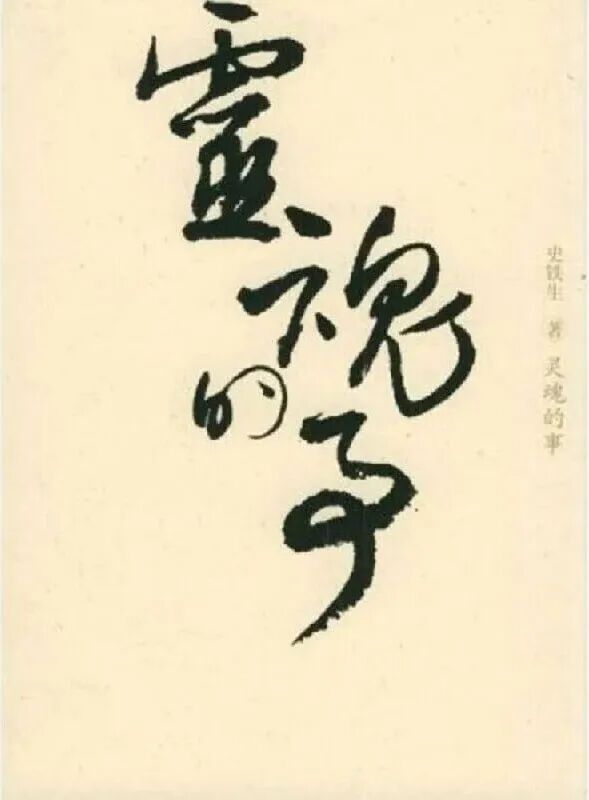 靈魂
的事
史铁生 著 灵魂的事